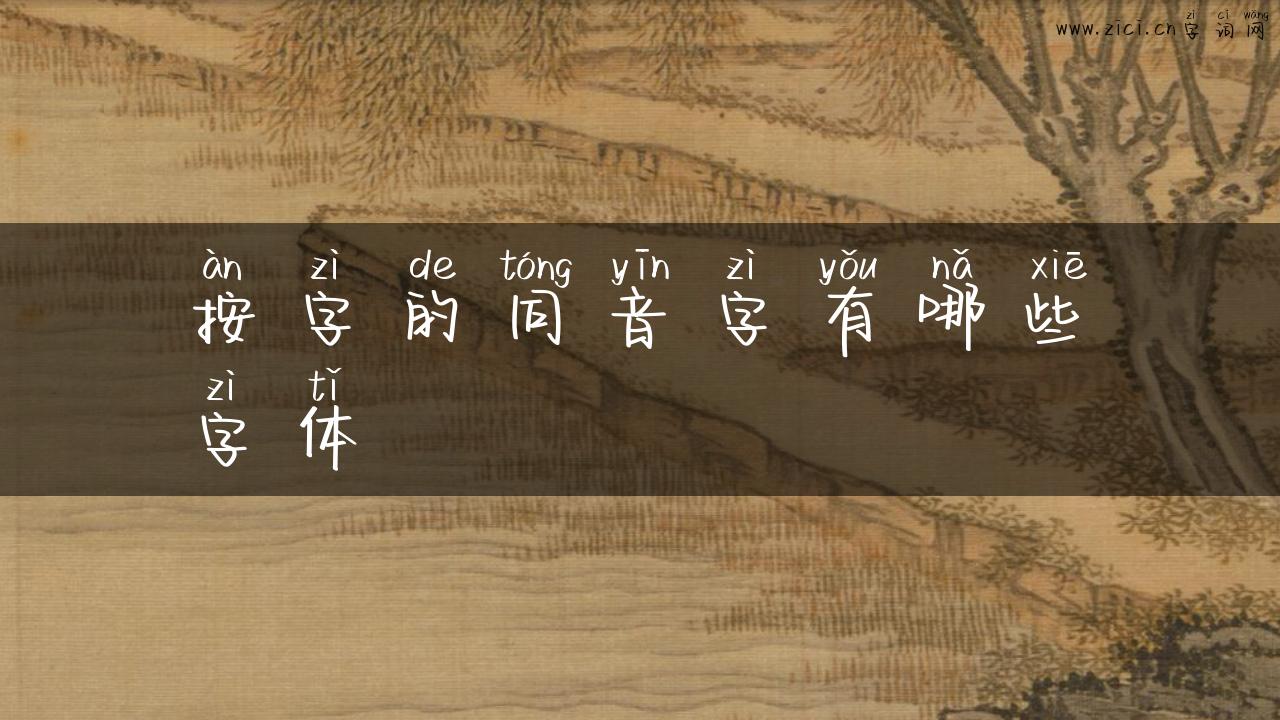 zì cí wǎng
www.zici.cn字词网
àn zì de tóng yīn zì yǒu nǎ xiē
按字的同音字有哪些
zì tǐ
字体